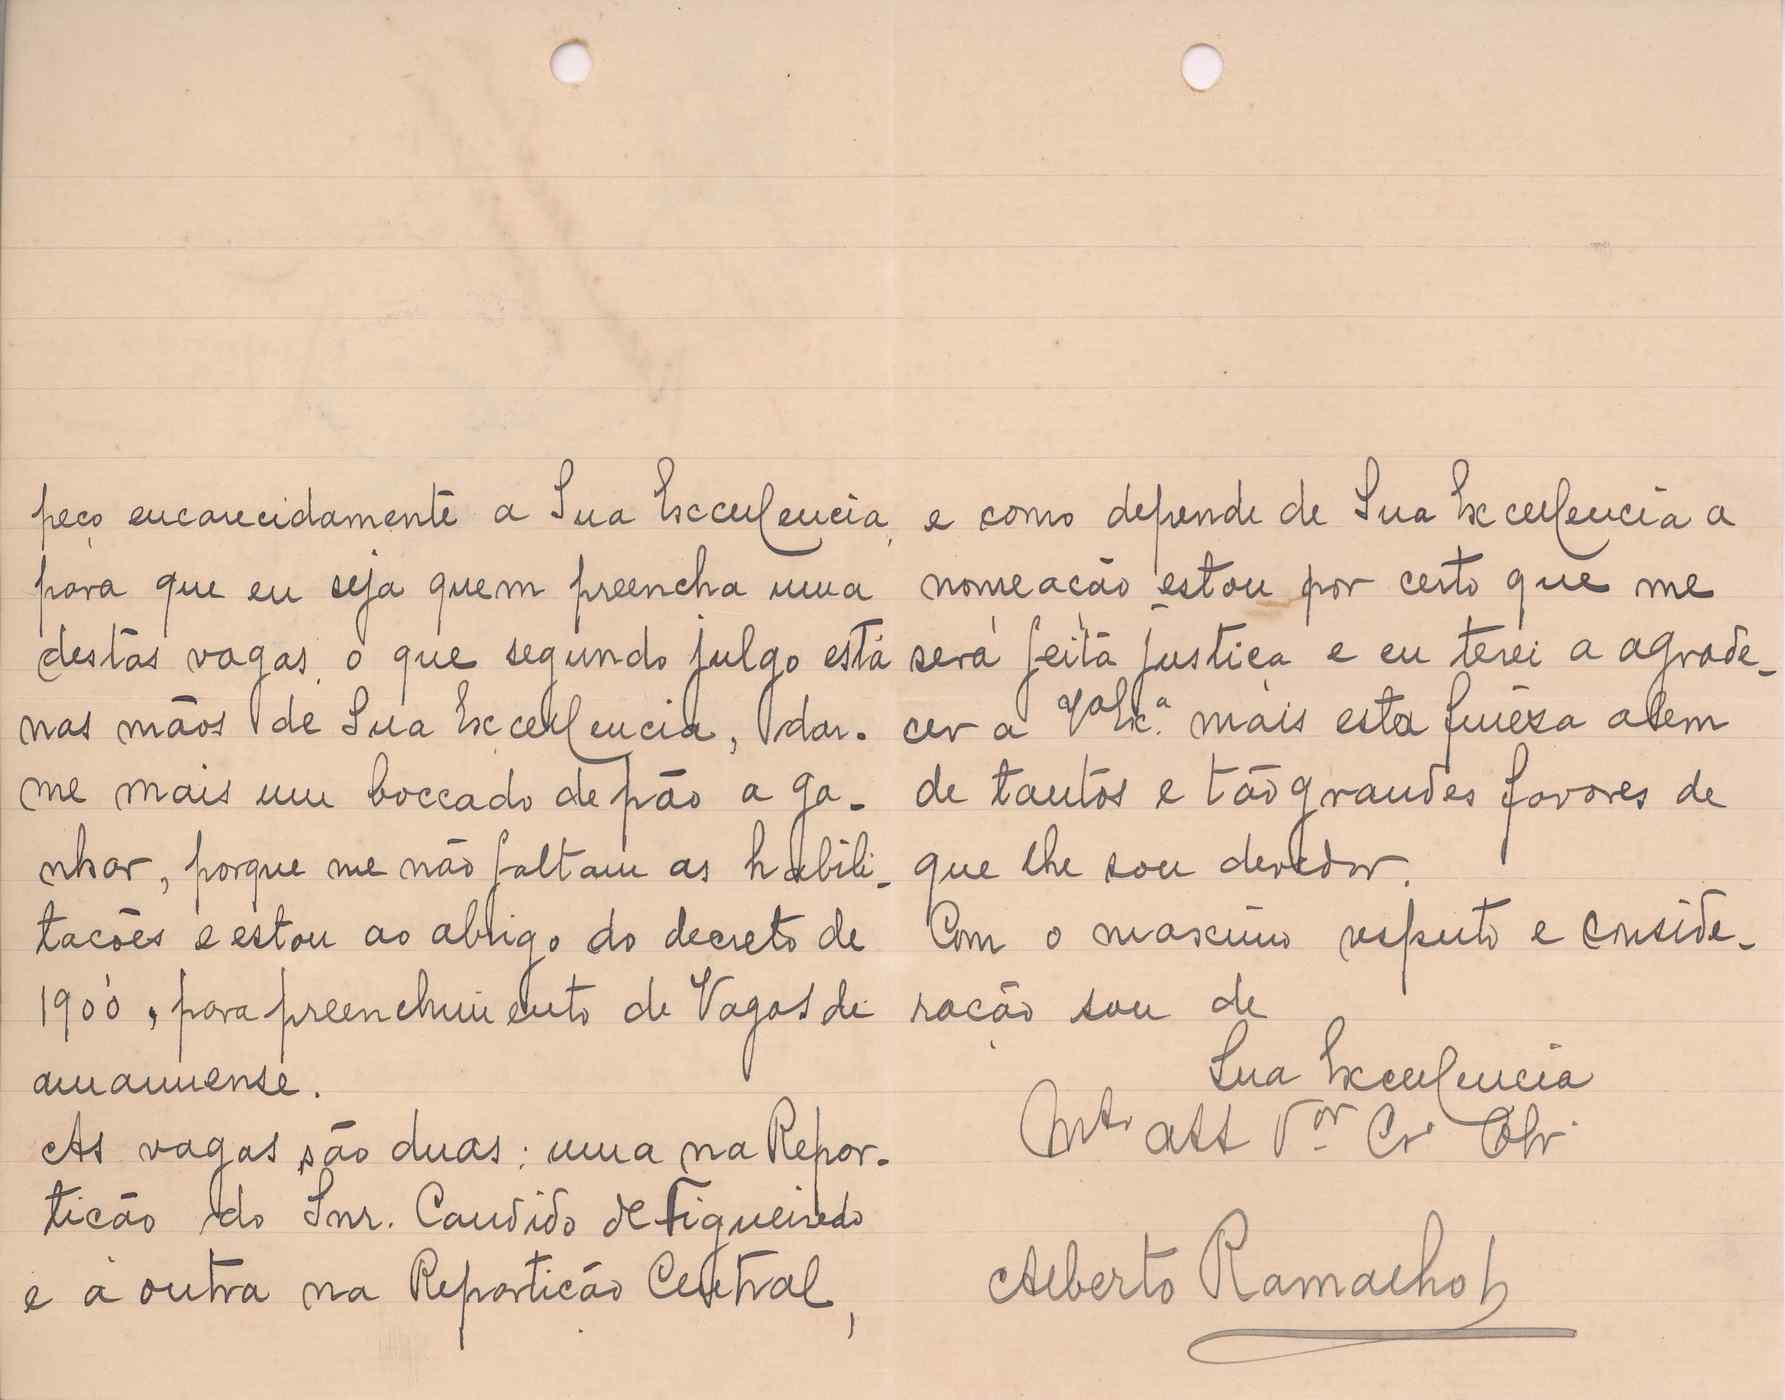 peço encarecidamente a Sua Excellencia,
para que eu seja quem preencha uma
destas vagas, o que segundo julgo está
nas mãos de Sua Excellencia, dar-
me mais um boccado de pão a ga-
nhar, porque me não faltam as habili-
tacões e estou ao abrigo do decreto de
1900, para preenchimento de Vagas de
amanuense.
As vagas são duas: uma na Repar-
ticão do Snr. Candido de Figueiredo
e a outra na Reparticão Central,
e como depende de Sua Excellencia a
nomeação estou por certo que me
será feita justiça e eu terei a agrade-
cer a Vª Exª. mais esta fineza alem
de tantos e tão grandes favores de
que lhe sou devedor.
Com o maximo respeito e conside-
ração sou de
Sua Excellencia
Mto att Vor Cro Obro
Alberto Ramalho